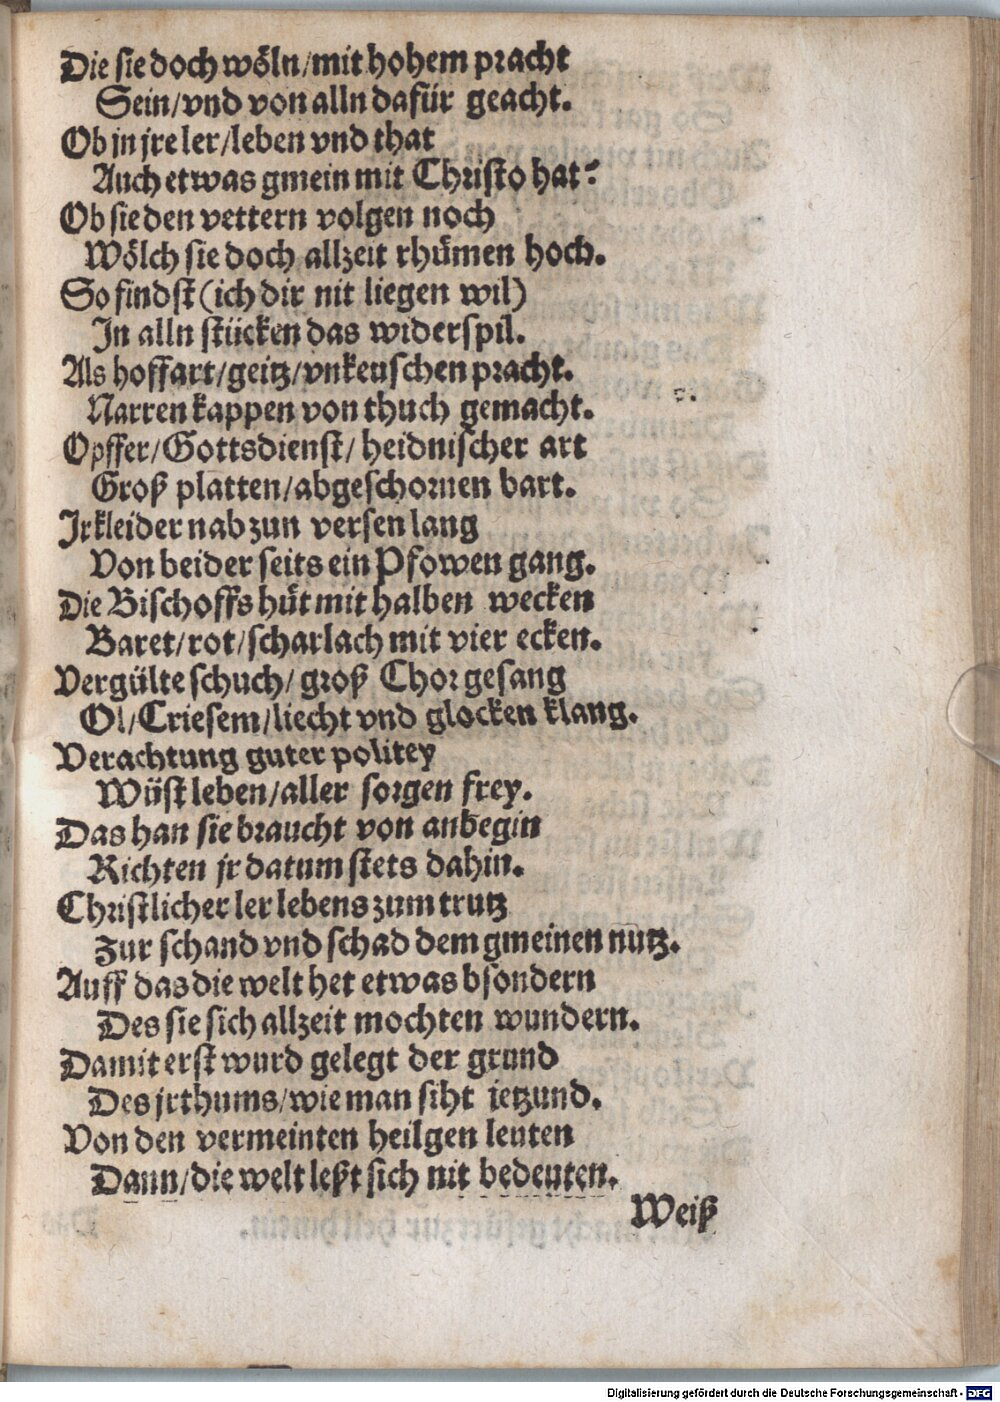 Die sie doch wöln/mit hohem pracht
Sein/vnd von alln dafür geacht.
Ob in jre ler/leben vnd that
Auch etwas gmein mit Christo hat?
Ob sie den vettern volgen noch
Wölch sie doch allzeit rhümen hoch.
So findst (ich dir nit liegen wil)
In alln stücken das widerspil.
Als hoffart/geitz/vnkeuschen pracht.
Narren kappen von thuch gemacht.
Opffer/Gottsdienst/ heidnischer art
Groß platten/abgeschornen bart.
Ir kleider nab zun versen lang
Von beider seits ein Pfowen gang.
Die Bischoffs hüt mit halben wecken
Baret/rot/scharlach mit vier ecken.
Vergülte schuch/ groß Chorgesang
Ol/Criesem/liecht vnd glocken klang.
Verachtung guter politey
Wüst leben/aller sorgen frey.
Das han sie braucht von anbegin
Richten jr datum stets dahin.
Christlicher ler lebens zum trutz
Zur schand vnd schad dem gmeinen nutz.
Auff das die welt het etwas bsondern
Des sie sich allzeit mochten wundern.
Damit erst wurd gelegt der grund
Des jrthums/wie man siht jetzund.
Von den vermeinten heilgen leuten
Dann/die welt leßt sich nit bedeuten.
Weiß
Digitalisierung gefördert durch die Deutsche Forschungsgemeinschaft - DFG